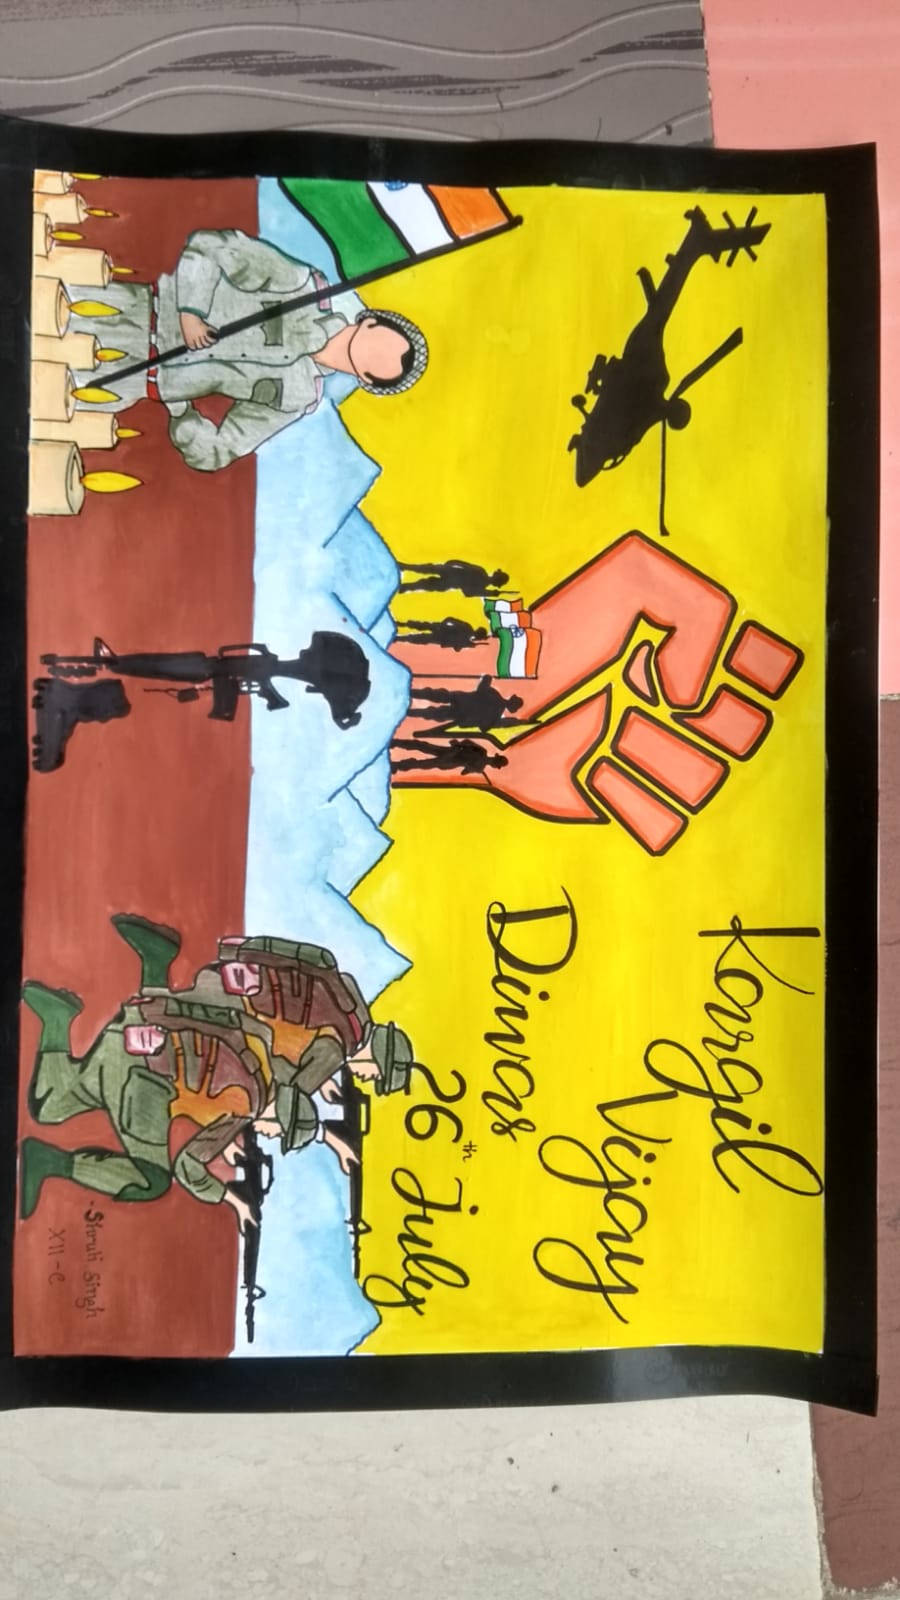 Kargil
Vijay
Divas
26th July
Shruti Singh
XII-C